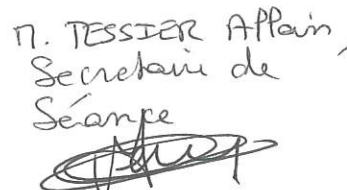 M. TESSIER Alain
Secretaire de
Séance